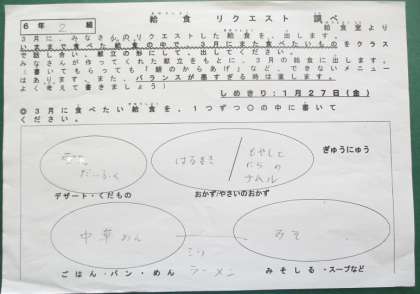 給食リクエスト調べ
6年 2 組
給食室より
3月に、みなさんのリクエストした給食を、出します。
いままで食べた給食の中で、3月にまた食べたいものをクラス
で話し合い、献立の形にして、出してください。
みなさんが作ってくれた献立をもとに、3月の給食に出します。
(書いてもらっても「鯨のからあげ」など、できないメニュー
はあります。また、バランスが悪すぎる時は直します。
よく考えて書きましょう)
しめきり:1月27日(金)
◎3月に食べたい給食を、1つずつ○の中に書いて
ください。
だーふく
デザート・くだもの
はるまき
もやしと
にらの
ナムル
おかず/やさいのおかず
ぎゅうにゅう
中華めん
ごはん・パン・めん
みそ
ラーメン
みそしる・スープなど